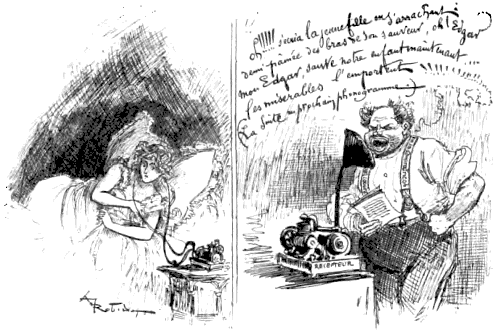 oh !!!!! s'écria la jeune fille en s'arrachant
demi-pâmée des bras de son sauveur, oh ! Edgar
mon Edgar, sauve notre enfant maintenant
les misérables l'emportent !!!.....
(La suite au prochain phonogramme)
RÉCEPTEUR
A. Robida